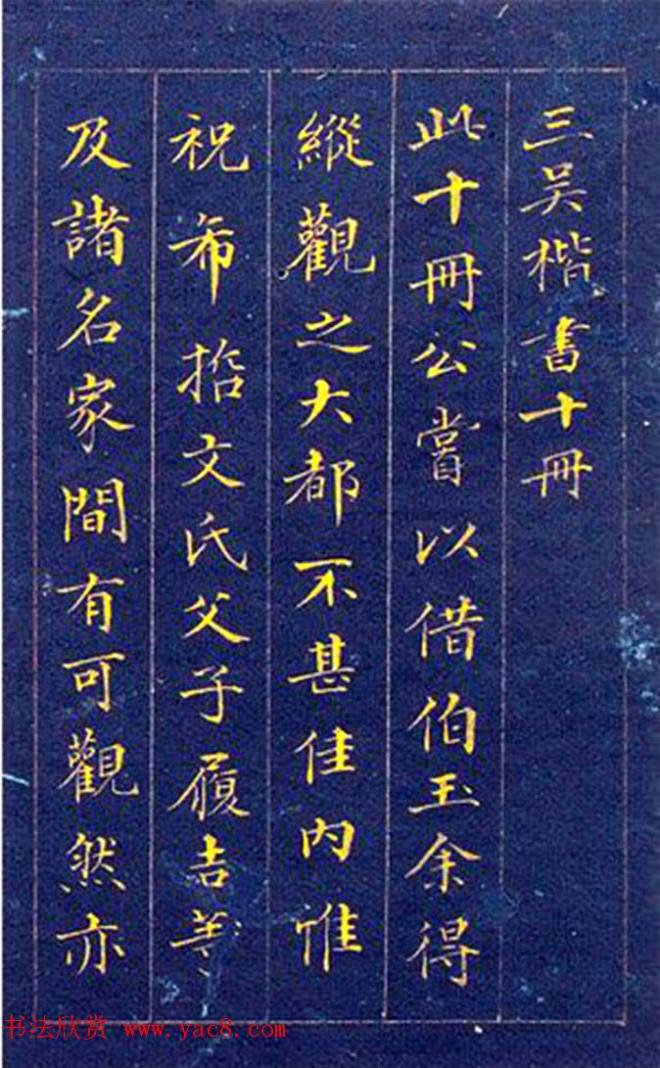 三吴楷書十冊
此十冊公嘗以借伯玉余得
縱觀之大都不甚佳内惟
祝希指文氏父子履吉等
及諸名家間有可觀然亦
书法欣赏 www.yac8.com